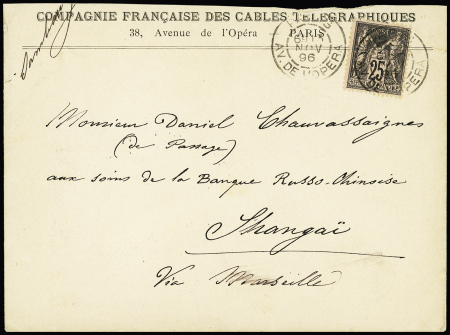 COMPAGNIE FRANÇAISE DES CABLES TÉLÉGRAPHIQUES
38, Avenue de l'Opéra PARIS
NOV
96
AV. DE L'OPERA
25
OPERA
Monsieur Daniel Chauvassaignes
(de Passage)
aux soins de la Banque Russo-Chinoise
Shangaï
Via Marseille